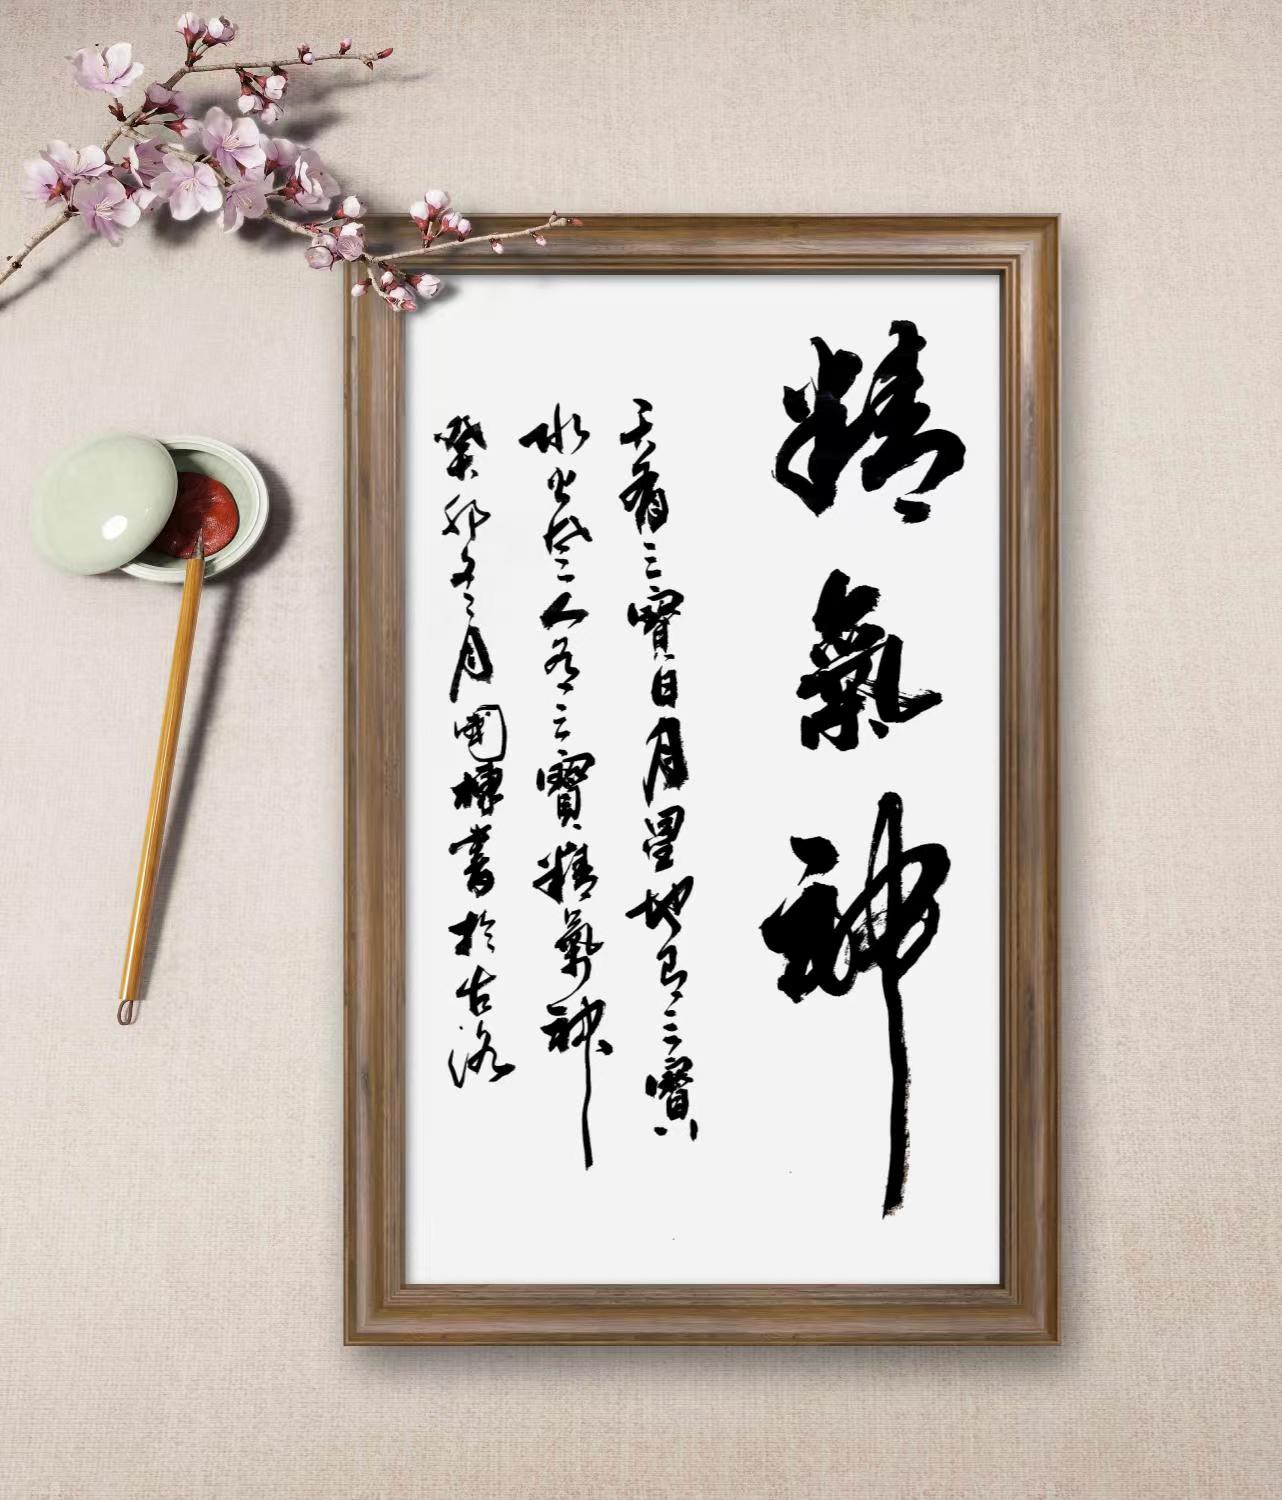 精氣神
天有三寶日月星地有三寶
水火人有三寶精氣神
癸卯冬月國棟書於古洛